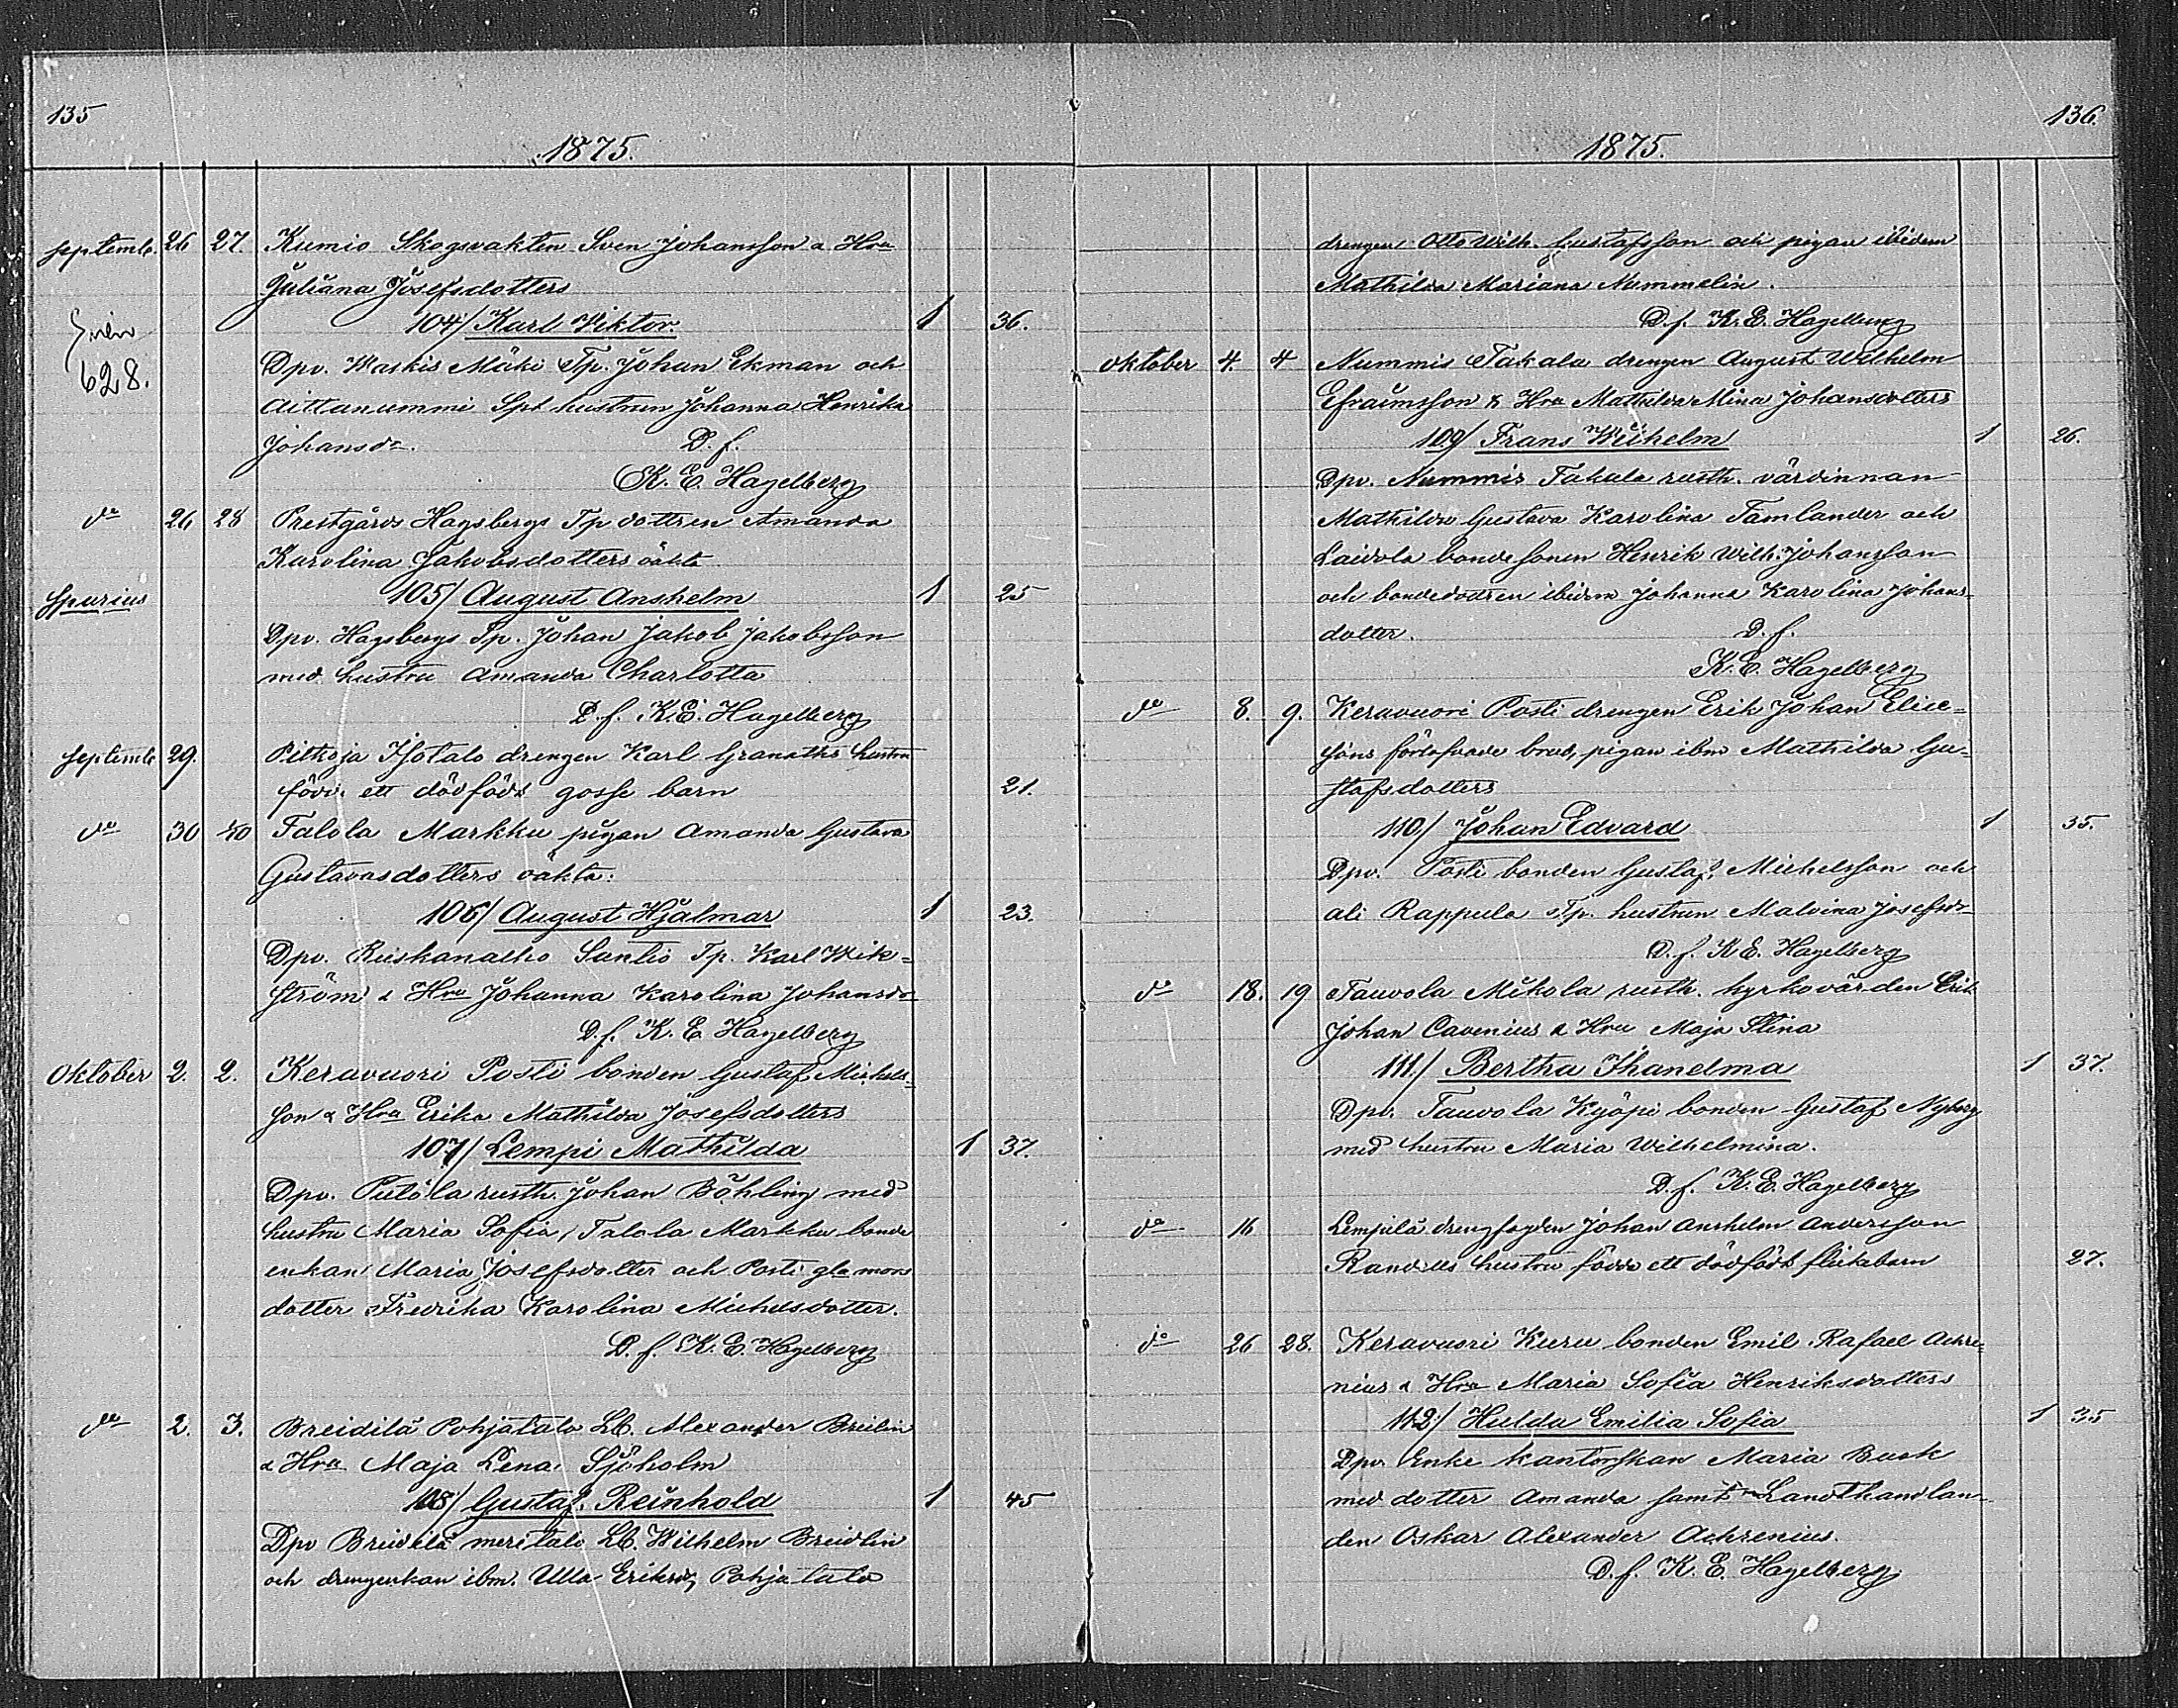 135
1875.
septemb. 26 27. Kumio Skogsvakten Sven Johansson a Hru
Juliana Josefsdotters
104/ Karl Viktor 1 36.
628.
Dpv. Waskis Mäki Tp. Johan Ekman och
Aittanummi Spt hustrun Johanna Henrika
Johansdr. D. f.
K. E. Hagelberg
do 26 28 Prestgårds Hagsbergs Tp dottren Amanda
Karolina Jakobsdotters oäkta
spurius 105/ August Anshelm 1 25
Dpv. Hagsbergs Tp. Johan Jakob Jakobsson
med hustru Amanda Charlotta
D. f. K. E. Hagelberg
septemb 29. Pitkoja Isotalo drengen Karl Granaths hustru
född. ett dödfödt gosse barn 21.
do 30 Talola Markku pigan Amanda Gustava
Gustavasdotters oäkta.
106/ August Hjalmar 1 23.
Dpv. Santio Tp. Karl Wik-
ström & Hru Johanna Karolina Johansdr
D. f. K. E. Hagelberg
Oktober 2. 2. Keravuori Posti bonden Gustaf Michels-
son & Hru Erika Mathilda Josefsdotters
107/ Lempi Mathilda 1 37.
Dpv. rusth. Johan Böhling med
hustru Maria Sofia, Talola Markku bonde
enkan Maria Josefsdotter och Posti gla mors
dotter Fredrika Karolina Michelsdotter.
D. f. K. E. Hagelberg
do 2. 3. Breidilä Pohjatalo Lb. Alexander Breilin
& Hru Maja Lena Sjöholm
108/ Gustaf Reinhold 1 45
Dpv Breidilä meritalo Lb. Wilhelm Breidlin
och drengenkan ibm. Ulla Eriksdr, Pohjatalo
136.
1875.
drengen Otto Wilh. Gustafsson och pigan ibidem
Mathilda Mariana Nummelin.
D. f. K. E. Hagelberg
Oktober 4. 4 Nummis Takala drengen August Wilhelm
Efraimsson & Hru Mathilda Mina Johansdotters
109/ Frans Wilhelm 1 26.
Dpv. Nummis Takala rusth. värdinnan
Mathilda Gustava Karolina Tamlander och
Laidola bondesonen Henrik Wilh. Johansson
och bondedottren ibidem Johanna Karolina Johans-
dotter. D. f.
K. E. Hagelberg
do 8. 9. Keravuori Posti drengen Erik Johan Elie-
sons förlofvade brud, pigan ibm Mathilda Gu-
stafsdotters
110./ Johan Edvard 1 35.
Dpv. Posti bonden Gustaf Michelsson och
ali Rappula Tp. hustrun Malvina Josefsdr
D. f. K. E. Hagelberg
do 18. 19 Tauvola Mikola rusth. kyrkovärden Erik
Johan Cavenius & Hru Maja Stina
111./ Bertha Ihanelma 1 37.
Dpv. Tauvola Kyöpi bonden Gustaf Nyberg
med hustru Maria Wilhelmina.
D. f. K. E. Hagelberg
do 16 Lempilä drengfogden Johan Anshelm Andersson
hustru födde ett dödfödt flickebarn 27.
do 26 28. Keravuori Kuru bonden Emil Rafael Achre-
nius & Hru Maria Sofia Henriksdotters
112/ Hulda Emilia Sofia 1 35
Dpv. Enke kantorskan Maria
med dotter Amanda samt Landthandlan-
den Oskar Alexander Achrenius.
D. f. K. E. Hagelberg